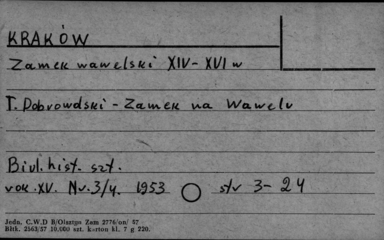 KRAKÓW
Zamek wawelski XIV-XVI w
T. Dobrowolski - Zamek na Wawelu
Biul. hist. szt.
rok. XV. Nr. 3/4. 1953 str 3-24
Jedn. C.W.D B/Olsztyn Zam 2776/on/ 57
Bltk. 2563/57 10.000 szt. karton kl. 7 g 220.